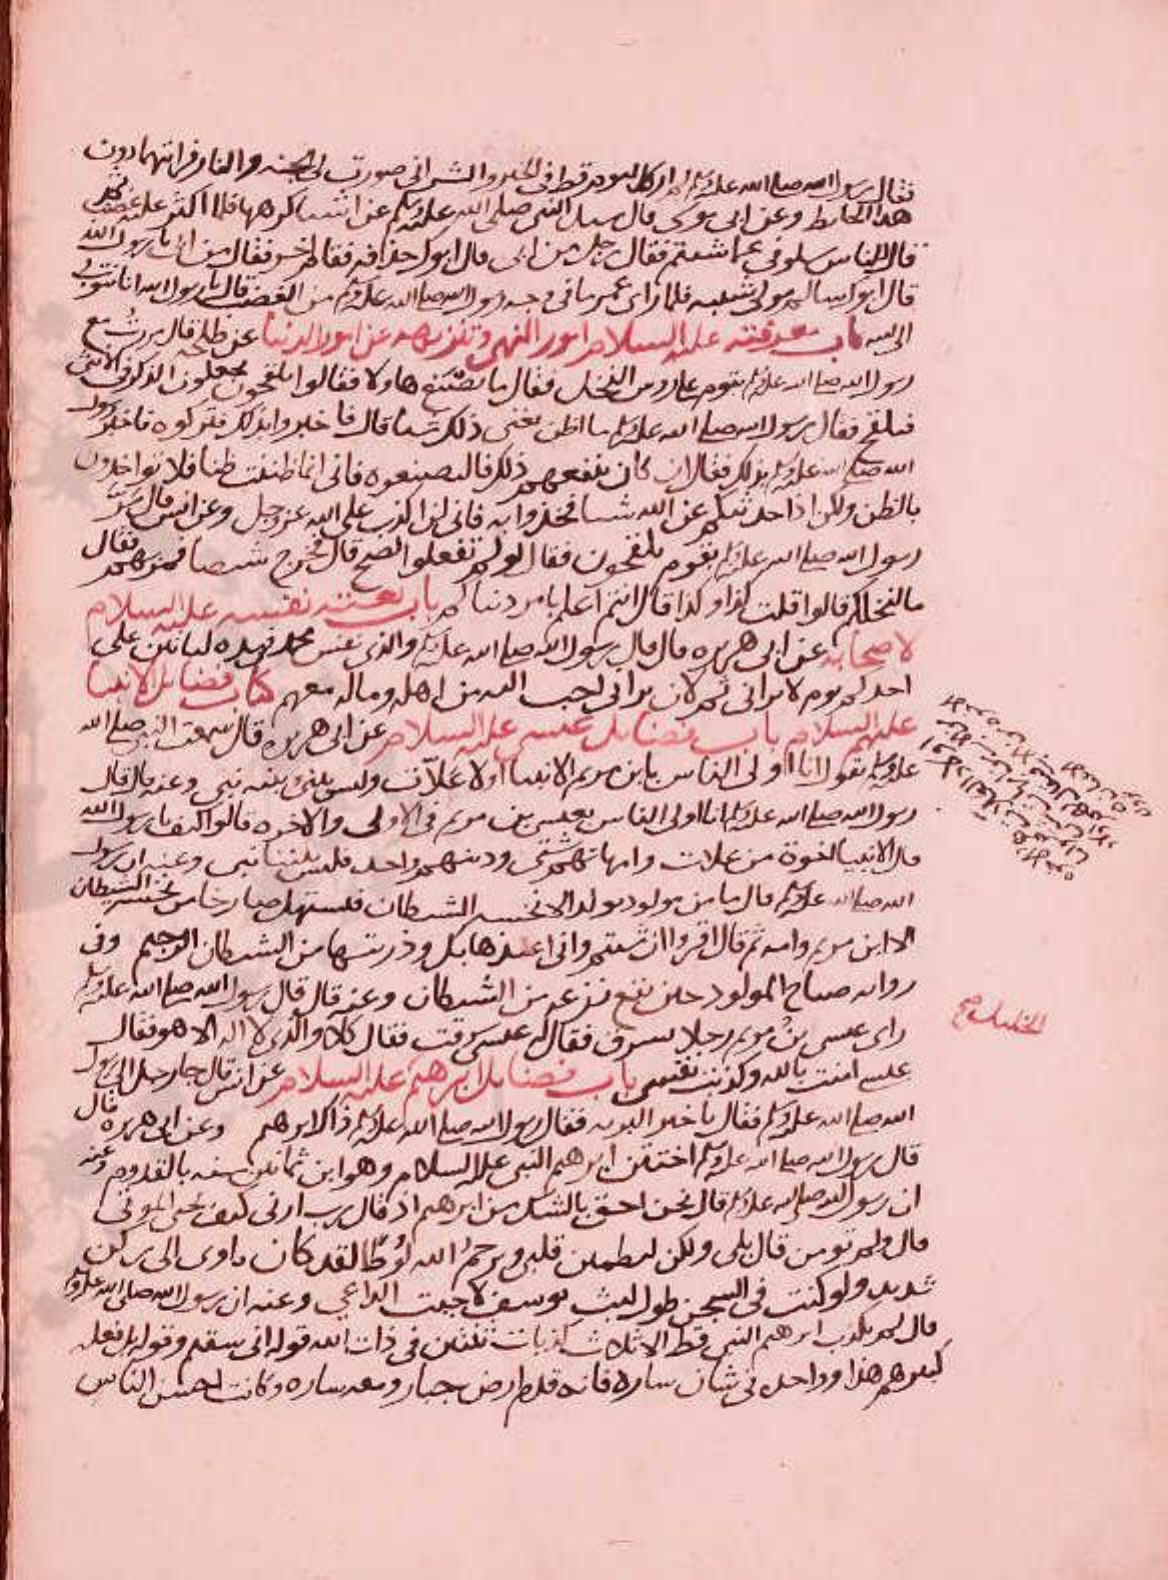 فقال رسول الله صلى الله عليه وسلم لم ار كاليوم قط فى الخير والشر انى صورت لى الجنه والنار فرايتهما دون
هذا الحايط وعن ابى موسى قال سيل النبى صلى الله عليه وسلم عن اشيا كرهها فلما اكثر عليه غضب ثم
قال للناس سلونى عما شيتم فقال رجل من ابى قال ابوك حذافه فقام اخر فقال من ابى يا رسول الله
قال ابوك سالم مولى شيبه فلما راى عمر ما فى وجه رسول الله صلى الله عليه وسلم من الغضب قال يا رسول الله انا نتوب
الى الله باب معرفته عليه السلام امور النهى وتنزيهه عن امور الدنيا عن طلحه قال مررت مع
رسول الله صلى الله عليه وسلم بقوم على روس النخل فقال ما يصنع هاولا فقالوا يلقحون يجعلون الذكر فى الانثى
فيلقح فقال رسول الله صلى الله عليه وسلم ما اظن يغنى ذلك شيا قال فاخبروا بذلك فتركوه فاخبر رسول
الله صلى الله عليه وسلم بذلك فقال ان كان ينفعهم ذلك فليصنعوه فانى انما ظننت ظنا فلا تواخذون
بالظن ولكن اذا حدثتكم عن الله شيا فخذوا به فانى لن اكذب على الله عز وجل وعن انس قال مر
رسول الله صلى الله عليه وسلم بقوم يلقحون فقال لو لم تفعلوا لصلح قال فخرج شيصا فمر بهم فقال
ما لنخلكم قالوا قلت كذا وكذا قال انتم اعلم بامر دنياكم باب نفسه عليه السلام
لاصحابه عن ابى هريره قال قال رسول الله صلى الله عليه وسلم والذى نفس محمد فى يده لياتين على
احدكم يوم لا يرانى ثم لان يرانى احب اليه من اهله وماله معهم كتاب فضايل الانبيا
عليهم السلام باب فضايل عيسى عليه السلام عن ابى هريره قال سمعت النبى صلى الله
عليه وسلم يقول انا اولى الناس بابن مريم الانبيا اولاد علات وليس بينى وبينه نبى وعنه قال قال
رسول الله صلى الله عليه وسلم انا اولى الناس بعيسى بن مريم فى الاولى والاخره قالوا كيف يا رسول الله
قال الانبيا اخوة من علات وامهاتهم شتى ودينهم واحد فليس بيننا نبى وعنه ان رسول
الله صلى الله عليه وسلم قال ما من مولود يولد الا نخسه الشيطان فيستهل صارخا من نخسه الشيطان
الا ابن مريم وامه ثم قال اقروا ان شيتم وانى اعيذها بك وذريتها من الشيطان الرجيم وفى
روايه صياح المولود حين يقع نزغه من الشيطان وعنه قال قال رسول الله صلى الله عليه وسلم
راى عيسى بن مريم رجلا يسرق فقال له عيسى سرقت فقال كلا والذى لا اله الا هو فقال
عيسى امنت بالله وكذبت نفسى باب فضايل ابرهيم عليه السلام عن انس قال جا رجل الى رسول
الله صلى الله عليه وسلم فقال يا خير البريه فقال رسول الله صلى الله عليه وسلم ذاك ابرهيم وعن ابى هريره قال
قال رسول الله صلى الله عليه وسلم اختتن ابرهيم النبى عليه السلام وهو ابن ثمانين سنه بالقدوم وعنه
ان رسول الله صلى الله عليه وسلم قال نحن احق بالشك من ابرهيم اذ قال رب ارنى كيف تحيى الموتى
قال اولم تومن قال بلى ولكن ليطمين قلبى ويرحم الله لوطا لقد كان ياوى الى ركن
شديد ولو لبثت فى السجن طول لبث يوسف لاجبت الداعى وعنه ان رسول الله صلى الله عليه وسلم
قال لم يكذب ابرهيم النبى قط الا ثلاث كذبات ثنتين فى ذات الله قوله انى سقيم وقوله بل فعله
كبيرهم هذا وواحده فى شان ساره فانه قدم ارض جبار ومعه ساره وكانت احسن الناس